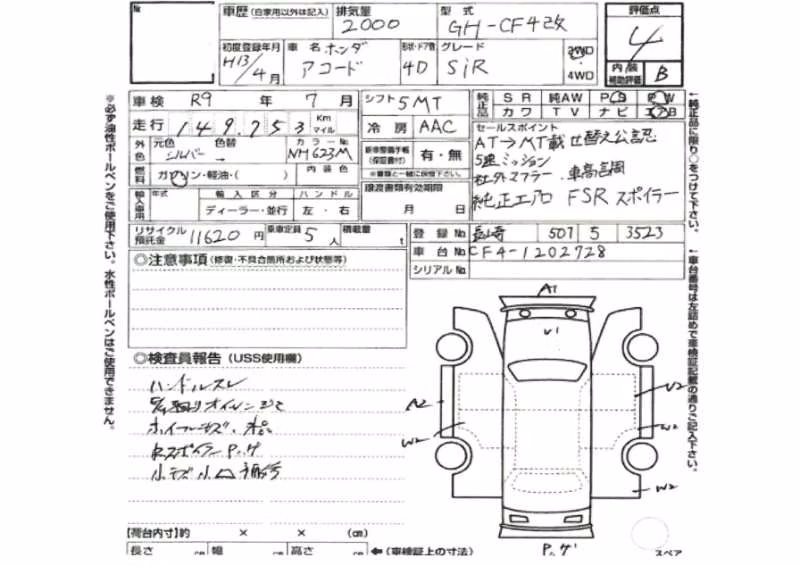 車歴(自家用以外は記入) 排気量 2000 型式 GH-CF4改 評価点 4
初度登録年月 H13/4月 車名 ホンダ アコード 形状・ドア数 4D グレード SiR 2WD 4WD 内/装 補助評価 B
車検 R9 年 7 月 シフト 5MT 純正品 SR 純AW PS PW
走行 149,753 Km マイル 冷房 AAC カワ TV ナビ エアB
外色 元色 シルバー 色替 → カラーNo NH623M 新車整備手帳(保証書付) 有・無
セールスポイント
AT→MT載せ替え公認
5速ミッション
社外マフラー 車高調
純正エアロ FSRスポイラー
燃料 ガソリン・軽油・( ) 内装色 ※書類と一緒に保管下さい。
輸入車用 年式 輸入区分 ハンドル 譲渡書類有効期限
ディーラー・並行 左・右 月 日
リサイクル預託金 11620 円 乗車定員 5 人 積載量 t 登録No 長崎 507 5 3523
車台No CF4-1202728
シリアルNo
◎注意事項(修復・不具合箇所および状態等)
◎検査員報告(USS使用欄)
ハンドルスレ
A1
V1
A2
W2
U2
W2
W2
スペア
【荷台内寸】約 × × (cm)
長さ cm 幅 cm 高さ cm ←(車検証上の寸法)
※必ず油性ボールペンをご使用下さい。水性ボールペンはご使用できません。
←純正品に限り○をつけて下さい。
←車台番号は左詰めで車検証記載の通りご記入下さい。